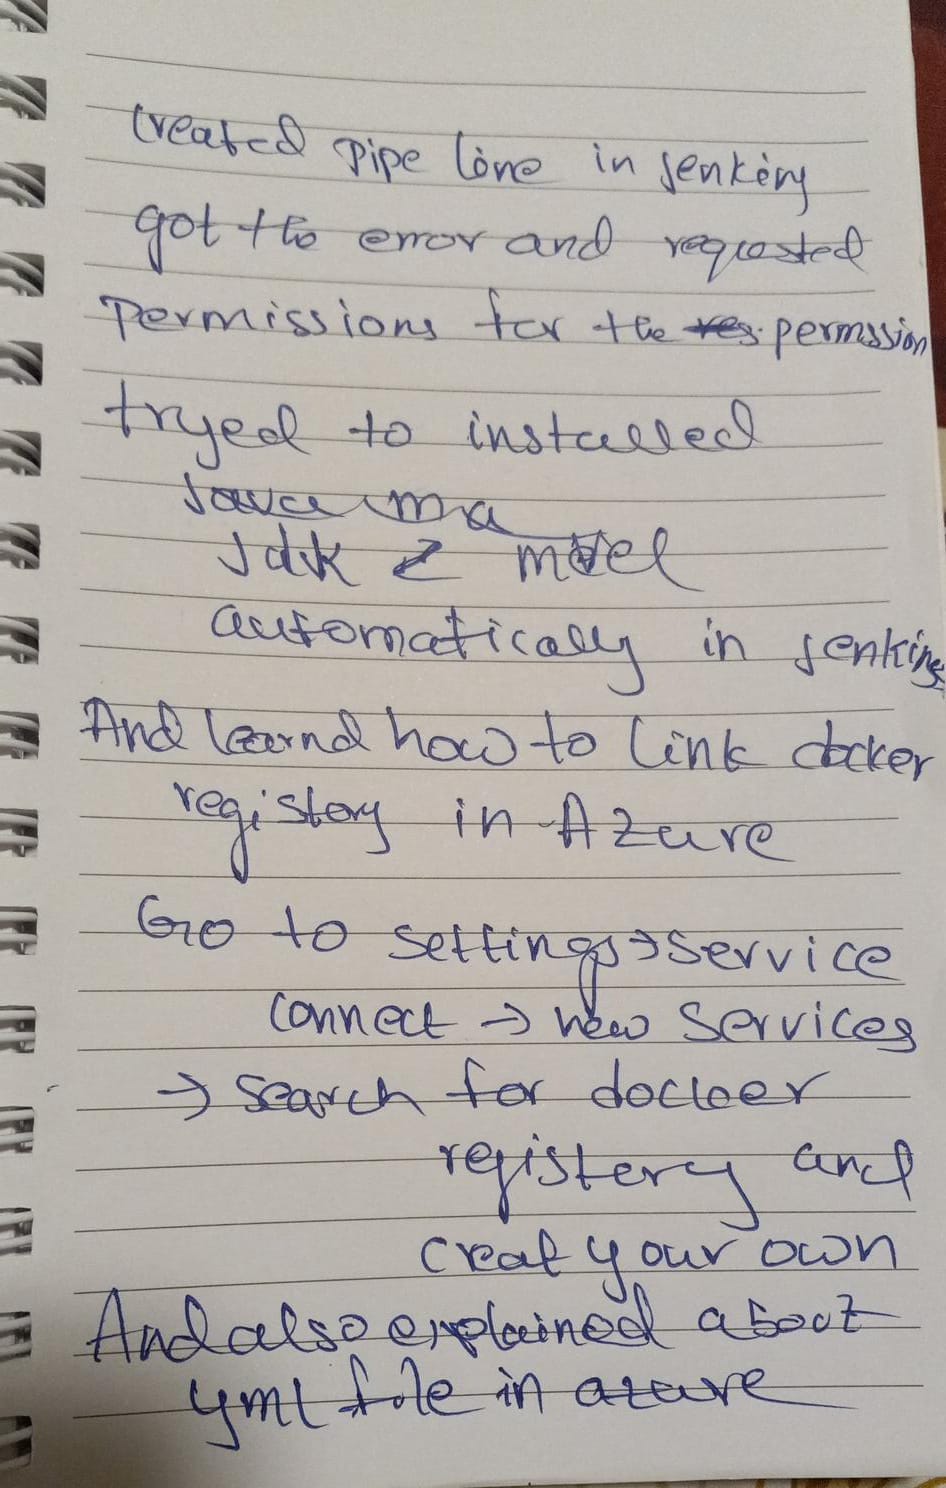 Created Pipe line in Jenkins
got the error and requested
Permissions for the res. permssion
tryed to installed
Java ma
Jdk 2 mvel
automatically in Jenkins
And learnd how to link docker
registory in Azure
Go to settings → Service
Connect → new Services
→ Search for docker
registery and
Creat your own
And also explained about
yml file in azure